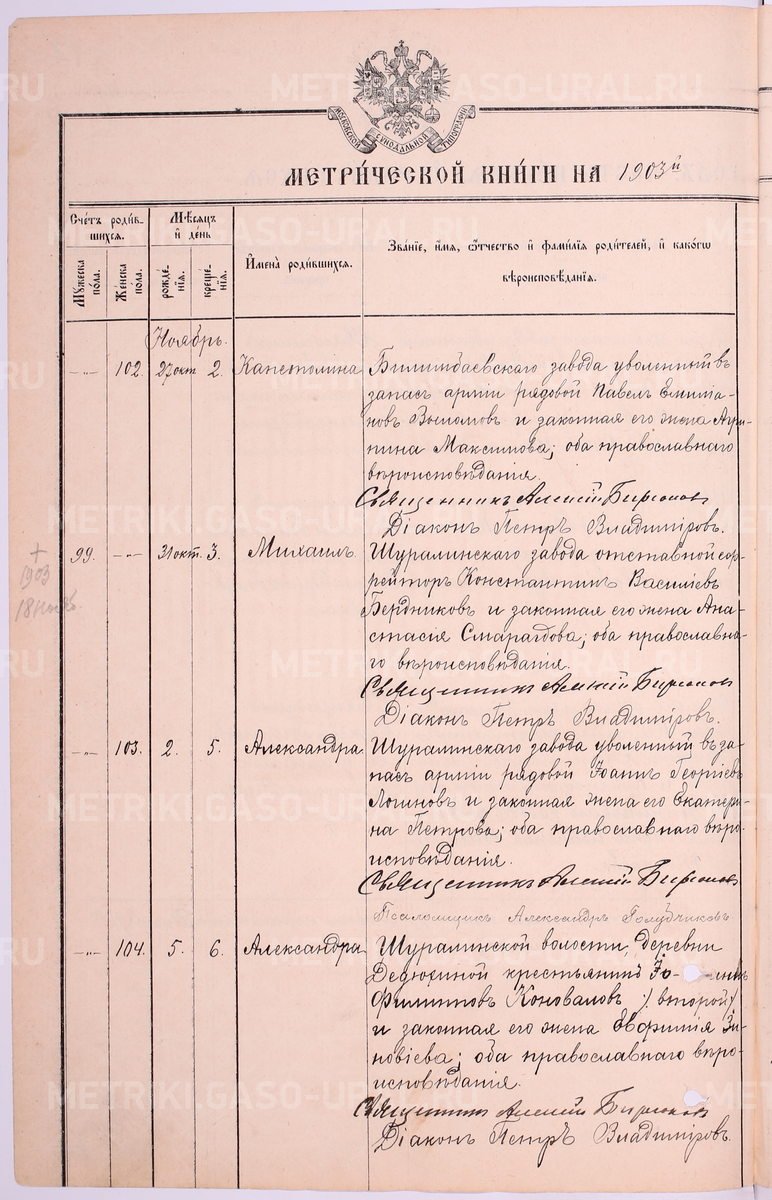 МОСКОВСКОЙ СѴНОДАЛЬНОЙ ТИПОГРАФІИ
МЕТРИ́ЧЕСКОЙ КНИ́ГИ НА 1903й
Сче́тъ роди́в-
шихся.
Мѣ́сяцъ
и҆ де́нь
И҆мена̀ роди́вшихся.
Зва́нїе, и҆́мя, ѻ҆́тчество и҆ фами́лїя роди́телей, и҆ како́гѡ
вѣроисповѣ́данїя.
Мꙋ́жеска
по́ла.
Же́нска
по́ла.
рожде́-
нїя.
креще́-
нїя.
Ноябрь.
-„- 102. 27 окт 2. Капетолина Билимбаевскаго завода уволенный въ
запасъ армiи рядовой Павелъ Емилiа-
новъ и законная его жена Агри-
пина Максимова; оба православнаго
вѣроисповѣданiя.
Священникъ Алексiй Бирюковъ
Дiаконъ Петръ Владимiровъ.
99. -„- 31 окт. 3. Михаилъ. Шуралинскаго завода отставной еф-
рейторъ Константинъ Василiевъ
Бердниковъ и законная его жена Ана-
стасiя Смарагдова; оба православна-
го вѣроисповѣданiя.
+
1903
18 нояб.
Священникъ Алексiй Бирюковъ
Дiаконъ Петръ Владимiровъ.
-„- 103. 2. 5. Александра Шуралинскаго завода уволенный въ за-
пасъ армiи рядовой Iоаннъ Георгiевъ
Логиновъ и законная жена его Екатери-
на Петрова; оба православнаго вѣро-
исповѣданiя.
Священникъ Алексiй Бирюковъ
Псаломщикъ Александръ Голубчиковъ
-„- 104. 5. 6. Александра Шуралинской волости, деревни
Дедюхиной крестьянинъ
Филиповъ Коноваловъ /второй/
и законная его жена Евфимiя Зи-
новiева; оба православнаго вѣро-
исповѣданiя.
Священникъ Алексiй Бирюковъ
Дiаконъ Петръ Владимiровъ.
METRIKI.GASO-URAL.RU